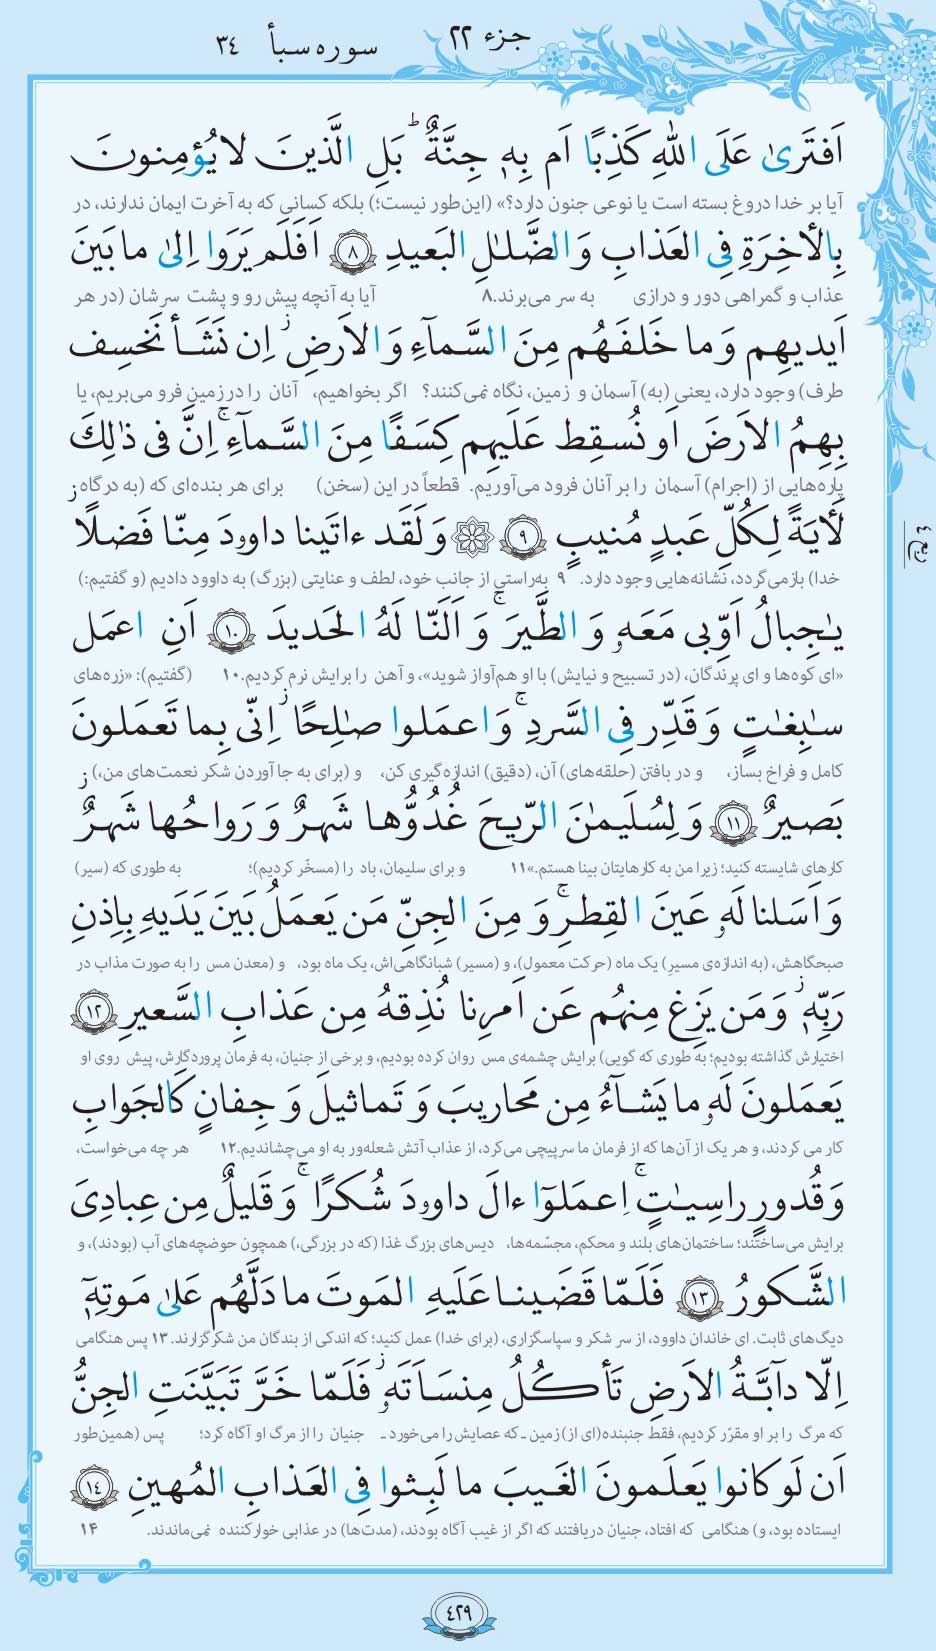 جزء ٢٢
سوره سبأ ٣٤
اَفتَرىٰ عَلَى اللّٰهِ كَذِبًا اَم بِهٖ جِنَّةٌ ؕ بَلِ الَّذينَ لا يُؤمِنونَ
آیا بر خدا دروغ بسته است یا نوعی جنون دارد؟» (این‌طور نیست؛) بلکه کسانی که به آخرت ایمان ندارند، در
بِالأخِرَةِ فِى العَذابِ وَ الضَّلٰلِ البَعيدِ ﴿٨﴾ اَفَلَم يَرَوا اِلىٰ ما بَينَ
عذاب و گمراهی دور و درازی به سر می‌برند.۸ آیا به آنچه پیش رو و پشت سرشان (در هر
اَيديهِم وَ ما خَلفَهُم مِنَ السَّمآءِ وَ الاَرضِ ز اِن نَشَأ نَخسِف
طرف) وجود دارد، یعنی (به) آسمان و زمین، نگاه نمی‌کنند؟ اگر بخواهیم، آنان را در زمین فرو می‌بریم، یا
بِهِمُ الاَرضَ اَو نُسقِط عَلَيهِم كِسَفًا مِنَ السَّمآءِ ۚ اِنَّ فى ذٰلِكَ
پاره‌هایی از (اجرام) آسمان را بر آنان فرود می‌آوریم. قطعاً در این (سخن) برای هر بنده‌ای که (به درگاه
لَأيَةً لِكُلِّ عَبدٍ مُنيبٍ ﴿٩﴾ ۞ وَ لَقَد ءاتَينا داوۥدَ مِنّا فَضلًا ز
خدا) بازمی‌گردد، نشانه‌هایی وجود دارد. ۹ به‌راستی از جانب خود، لطف و عنایتی (بزرگ) به داوود دادیم (و گفتیم:)
يٰجِبالُ اَوِّبى مَعَهٗ وَ الطَّيرَ ۚ وَ اَلَنّا لَهُ الحَديدَ ﴿١٠﴾ اَنِ اعمَل
«ای کوه‌ها و ای پرندگان، (در تسبیح و نیایش) با او هم‌آواز شوید»، و آهن را برایش نرم کردیم.۱۰ (گفتیم): «زره‌های
سٰبِغٰتٍ وَ قَدِّر فِى السَّردِ ۚ وَ اعمَلوا صٰلِحًا ز اِنّى بِما تَعمَلونَ
کامل و فراخ بساز، و در بافتن (حلقه‌های) آن، (دقیق) اندازه‌گیری کن، و (برای به جا آوردن شکر نعمت‌های من،)
بَصيرٌ ﴿١١﴾ وَ لِسُلَيمٰنَ الرّيحَ غُدُوُّها شَهرٌ وَ رَواحُها شَهرٌ ز
کارهای شایسته کنید؛ زیرا من به کارهایتان بینا هستم.»۱۱ و برای سلیمان، باد را (مسخّر کردیم)؛ به طوری که (سیر)
وَ اَسَلنا لَهٗ عَينَ القِطرِ ۚ وَ مِنَ الجِنِّ مَن يَعمَلُ بَينَ يَدَيهِ بِاِذنِ
صبحگاهش، (به اندازه‌ی مسیرِ) یک ماه (حرکت معمول)، و (مسیر) شبانگاهی‌اش، یک ماه بود، و (معدن مس را به صورت مذاب در
رَبِّهٖ ز وَ مَن يَزِغ مِنهُم عَن اَمرِنا نُذِقهُ مِن عَذابِ السَّعيرِ ﴿١٢﴾
اختیارش گذاشته بودیم؛ به طوری که گویی) برایش چشمه‌ی مس روان کرده بودیم، و برخی از جنیان، به فرمان پروردگارش، پیش روی او
يَعمَلونَ لَهٗ ما يَشآءُ مِن مَحاريبَ وَ تَماثيلَ وَ جِفانٍ كَالجَوابِ
کار می کردند، و هر یک از آن‌ها که از فرمان ما سرپیچی می‌کرد، از عذاب آتش شعله‌ور به او می‌چشاندیم.۱۲ هر چه می‌خواست،
وَ قُدورٍ راسِيٰتٍ ۚ اِعمَلوٓا ءالَ داوۥدَ شُكرًا ۚ وَ قَليلٌ مِن عِبادِىَ
برایش می‌ساختند؛ ساختمان‌های بلند و محکم، مجسّمه‌ها، دیس‌های بزرگ غذا (که در بزرگی،) همچون حوضچه‌های آب (بودند)، و
الشَّكورُ ﴿١٣﴾ فَلَمّا قَضَينا عَلَيهِ المَوتَ ما دَلَّهُم عَلىٰ مَوتِهٖٓ
دیگ‌های ثابت. ای خاندان داوود، از سر شکر و سپاسگزاری، (برای خدا) عمل کنید؛ که اندکی از بندگان من شکرگزارند. ۱۳ پس هنگامی
اِلّا دآبَّةُ الاَرضِ تَأكُلُ مِنسَاَتَهٗ ز فَلَمّا خَرَّ تَبَيَّنَتِ الجِنُّ
که مرگ را بر او مقرّر کردیم، فقط جنبنده(ای از) زمین ـ که عصایش را می‌خورد ـ جنیان را از مرگ او آگاه کرد؛ پس (همین‌طور
اَن لَو كانوا يَعلَمونَ الغَيبَ ما لَبِثوا فِى العَذابِ المُهينِ ﴿١٤﴾
ایستاده بود، و) هنگامی که افتاد، جنیان دریافتند که اگر از غیب آگاه بودند، (مدت‌ها) در عذابی خوارکننده نمی‌ماندند. ۱۴
ربع ٤
٤٢٩